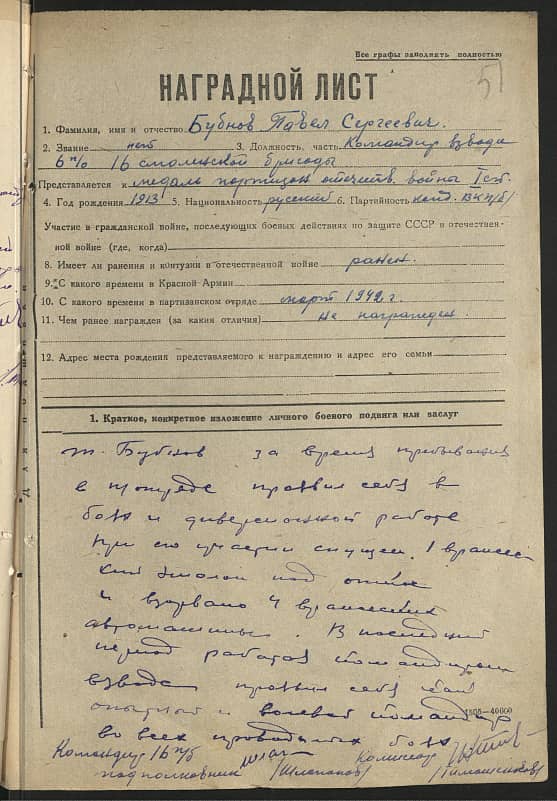 Все графы заполнять полностью
51
НАГРАДНОЙ ЛИСТ
1. Фамилия, имя и отчество Бубнов Павел Сергеевич.
2. Звание нет 3. Должность, часть Командир взвода
6 п/о 16 смоленской бригады
Представляется к медаль партизан отечеств. войны I ст.
4. Год рождения 1913 5. Национальность русский 6. Партийность канд. ВКП/б/
Участие в гражданской войне, последующих боевых действиях по защите СССР и отечествен-
ной войне (где, когда)
8. Имеет ли ранения и контузии в отечественной войне ранен.
9. С какого времени в Красной Армии
10. С какого времени в партизанском отряде март 1942 г.
11. Чем ранее награжден (за какия отличия) не награжден.
12. Адрес места рождения представляемого к награждению и адрес его семьи
1. Краткое, конкретное изложение личного боевого подвига или заслуг
т. Бубнов за время пребывания
в отряде проявил себя в
боях и диверсионной работе
при его участии спущен 1 вражес
кий эшелон под откос
и взорвано 4 вражеских
автомашины. В последний
период работая командиром
взвода проявил себя как
опытный и волевой командир
во всех проводимых боях
1505—40000
Командир 16 п/б Комиссар
подполковник /Шлапаков/ /Тимошенков/